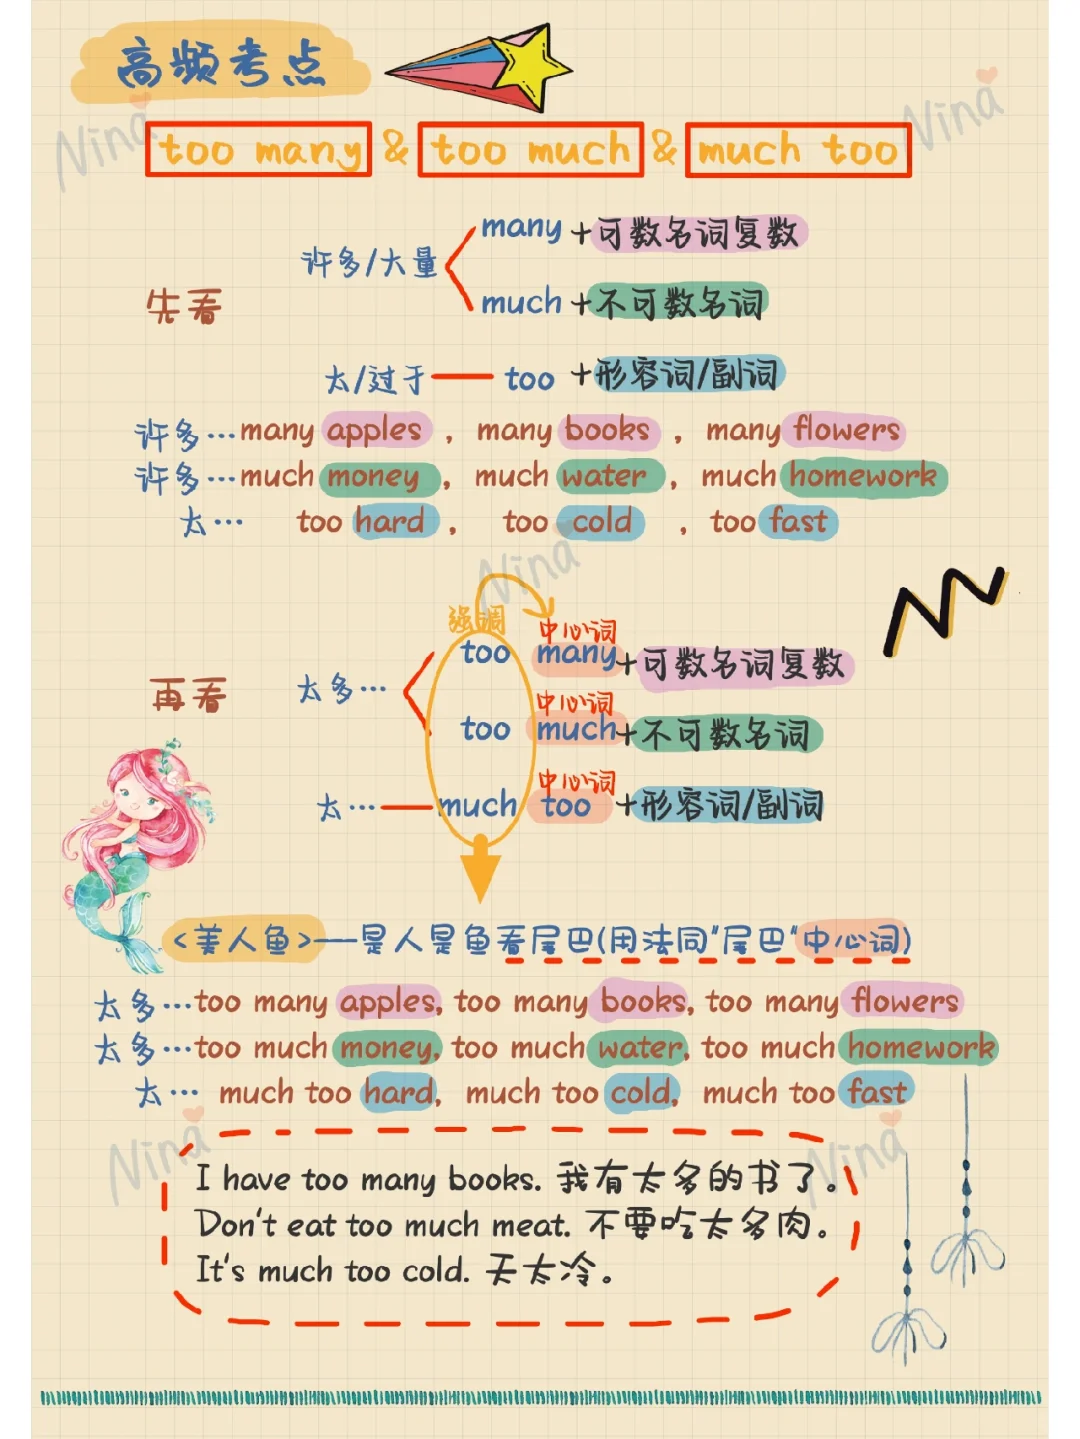 高频考点
Nina
Nina
too many & too much & much too
many +可数名词复数
许多/大量
先看
much +不可数名词
太/过于 too +形容词/副词
许多…many apples , many books , many flowers
许多…much money , much water , much homework
太… too hard , too cold , too fast
Nina
强调
中心词
too many+可数名词复数
再看
太多…
中心词
too much+不可数名词
中心词
太… much too +形容词/副词
<美人鱼>—是人是鱼看尾巴(用法同"尾巴"中心词)
太多…too many apples, too many books, too many flowers
太多…too much money, too much water, too much homework
太… much too hard, much too cold, much too fast
Nina
Nina
I have too many books. 我有太多的书了。
Don't eat too much meat. 不要吃太多肉。
It's much too cold. 天太冷。